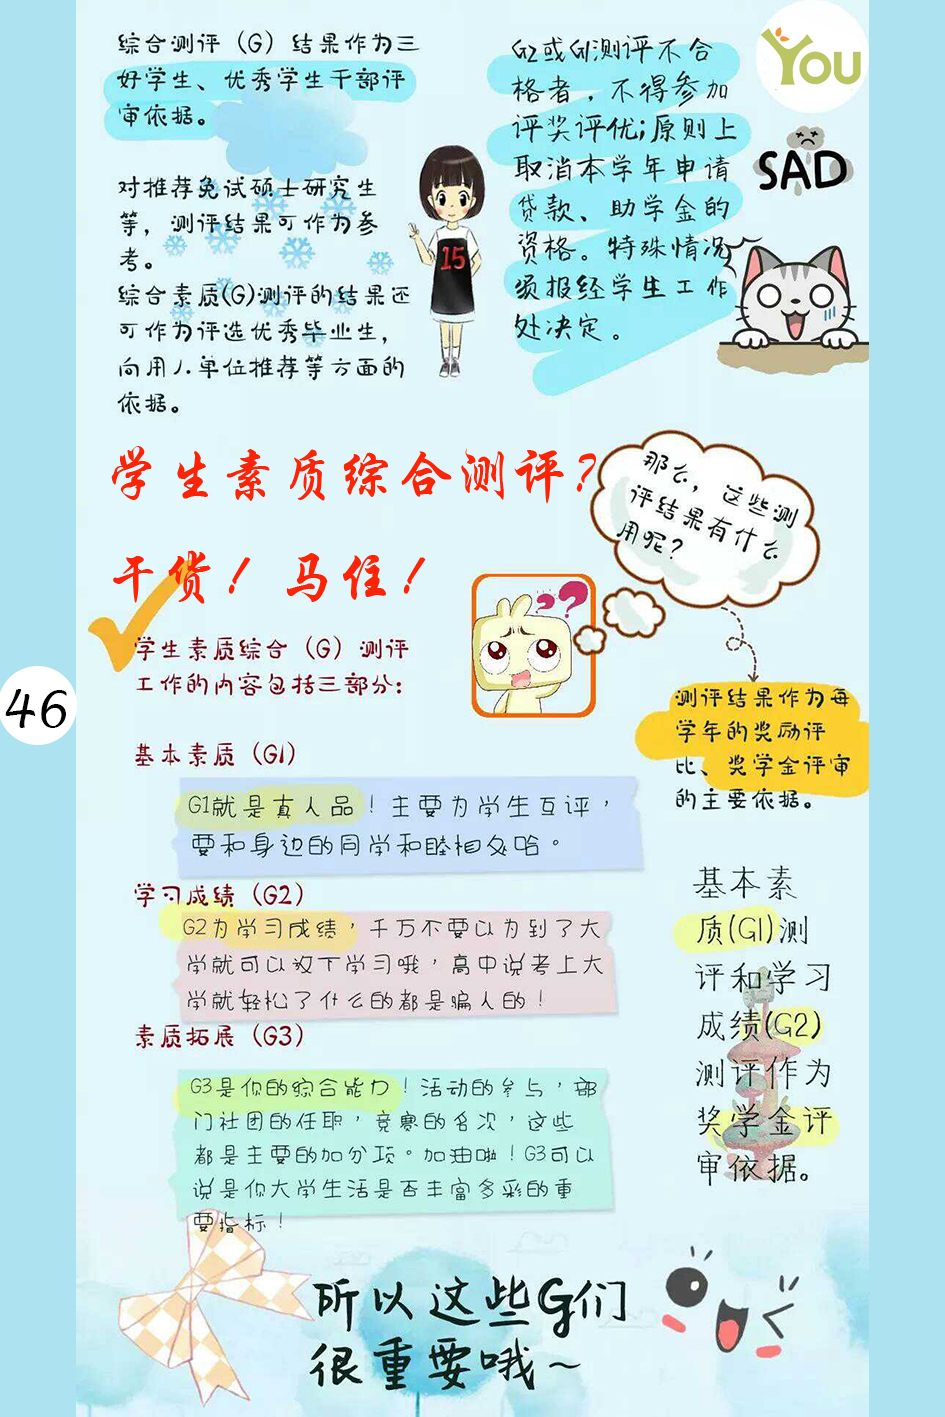 综合测评（G）结果作为三
好学生、优秀学生干部评
审依据。
对推荐免试硕士研究生
等，测评结果可作为参
考。
综合素质(G)测评的结果还
可作为评选优秀毕业生，
向用人单位推荐等方面的
依据。
G2或G1测评不合
格者，不得参加
评奖评优；原则上
取消本学年申请
贷款、助学金的
资格。特殊情况
须报经学生工作
处决定。
YOU
SAD
15
学生素质综合测评？
干货！马住！
那么，这些测
评结果有什么
用呢？
学生素质综合（G）测评
工作的内容包括三部分：
46
测评结果作为每
学年的奖励评
比、奖学金评审
的主要依据。
基本素质（G1）
G1就是真人品！主要为学生互评，
要和身边的同学和睦相处哈。
学习成绩（G2）
G2为学习成绩，千万不要以为到了大
学就可以放下学习哦，高中说考上大
学就轻松了什么的都是骗人的！
素质拓展（G3）
G3是你的综合能力！活动的参与，部
门社团的任职，竞赛的名次，这些
都是主要的加分项。加油啦！G3可以
说是你大学生活是否丰富多彩的重
要指标！
基本素
质(G1)测
评和学习
成绩(G2)
测评作为
奖学金评
审依据。
所以这些G们
很重要哦~